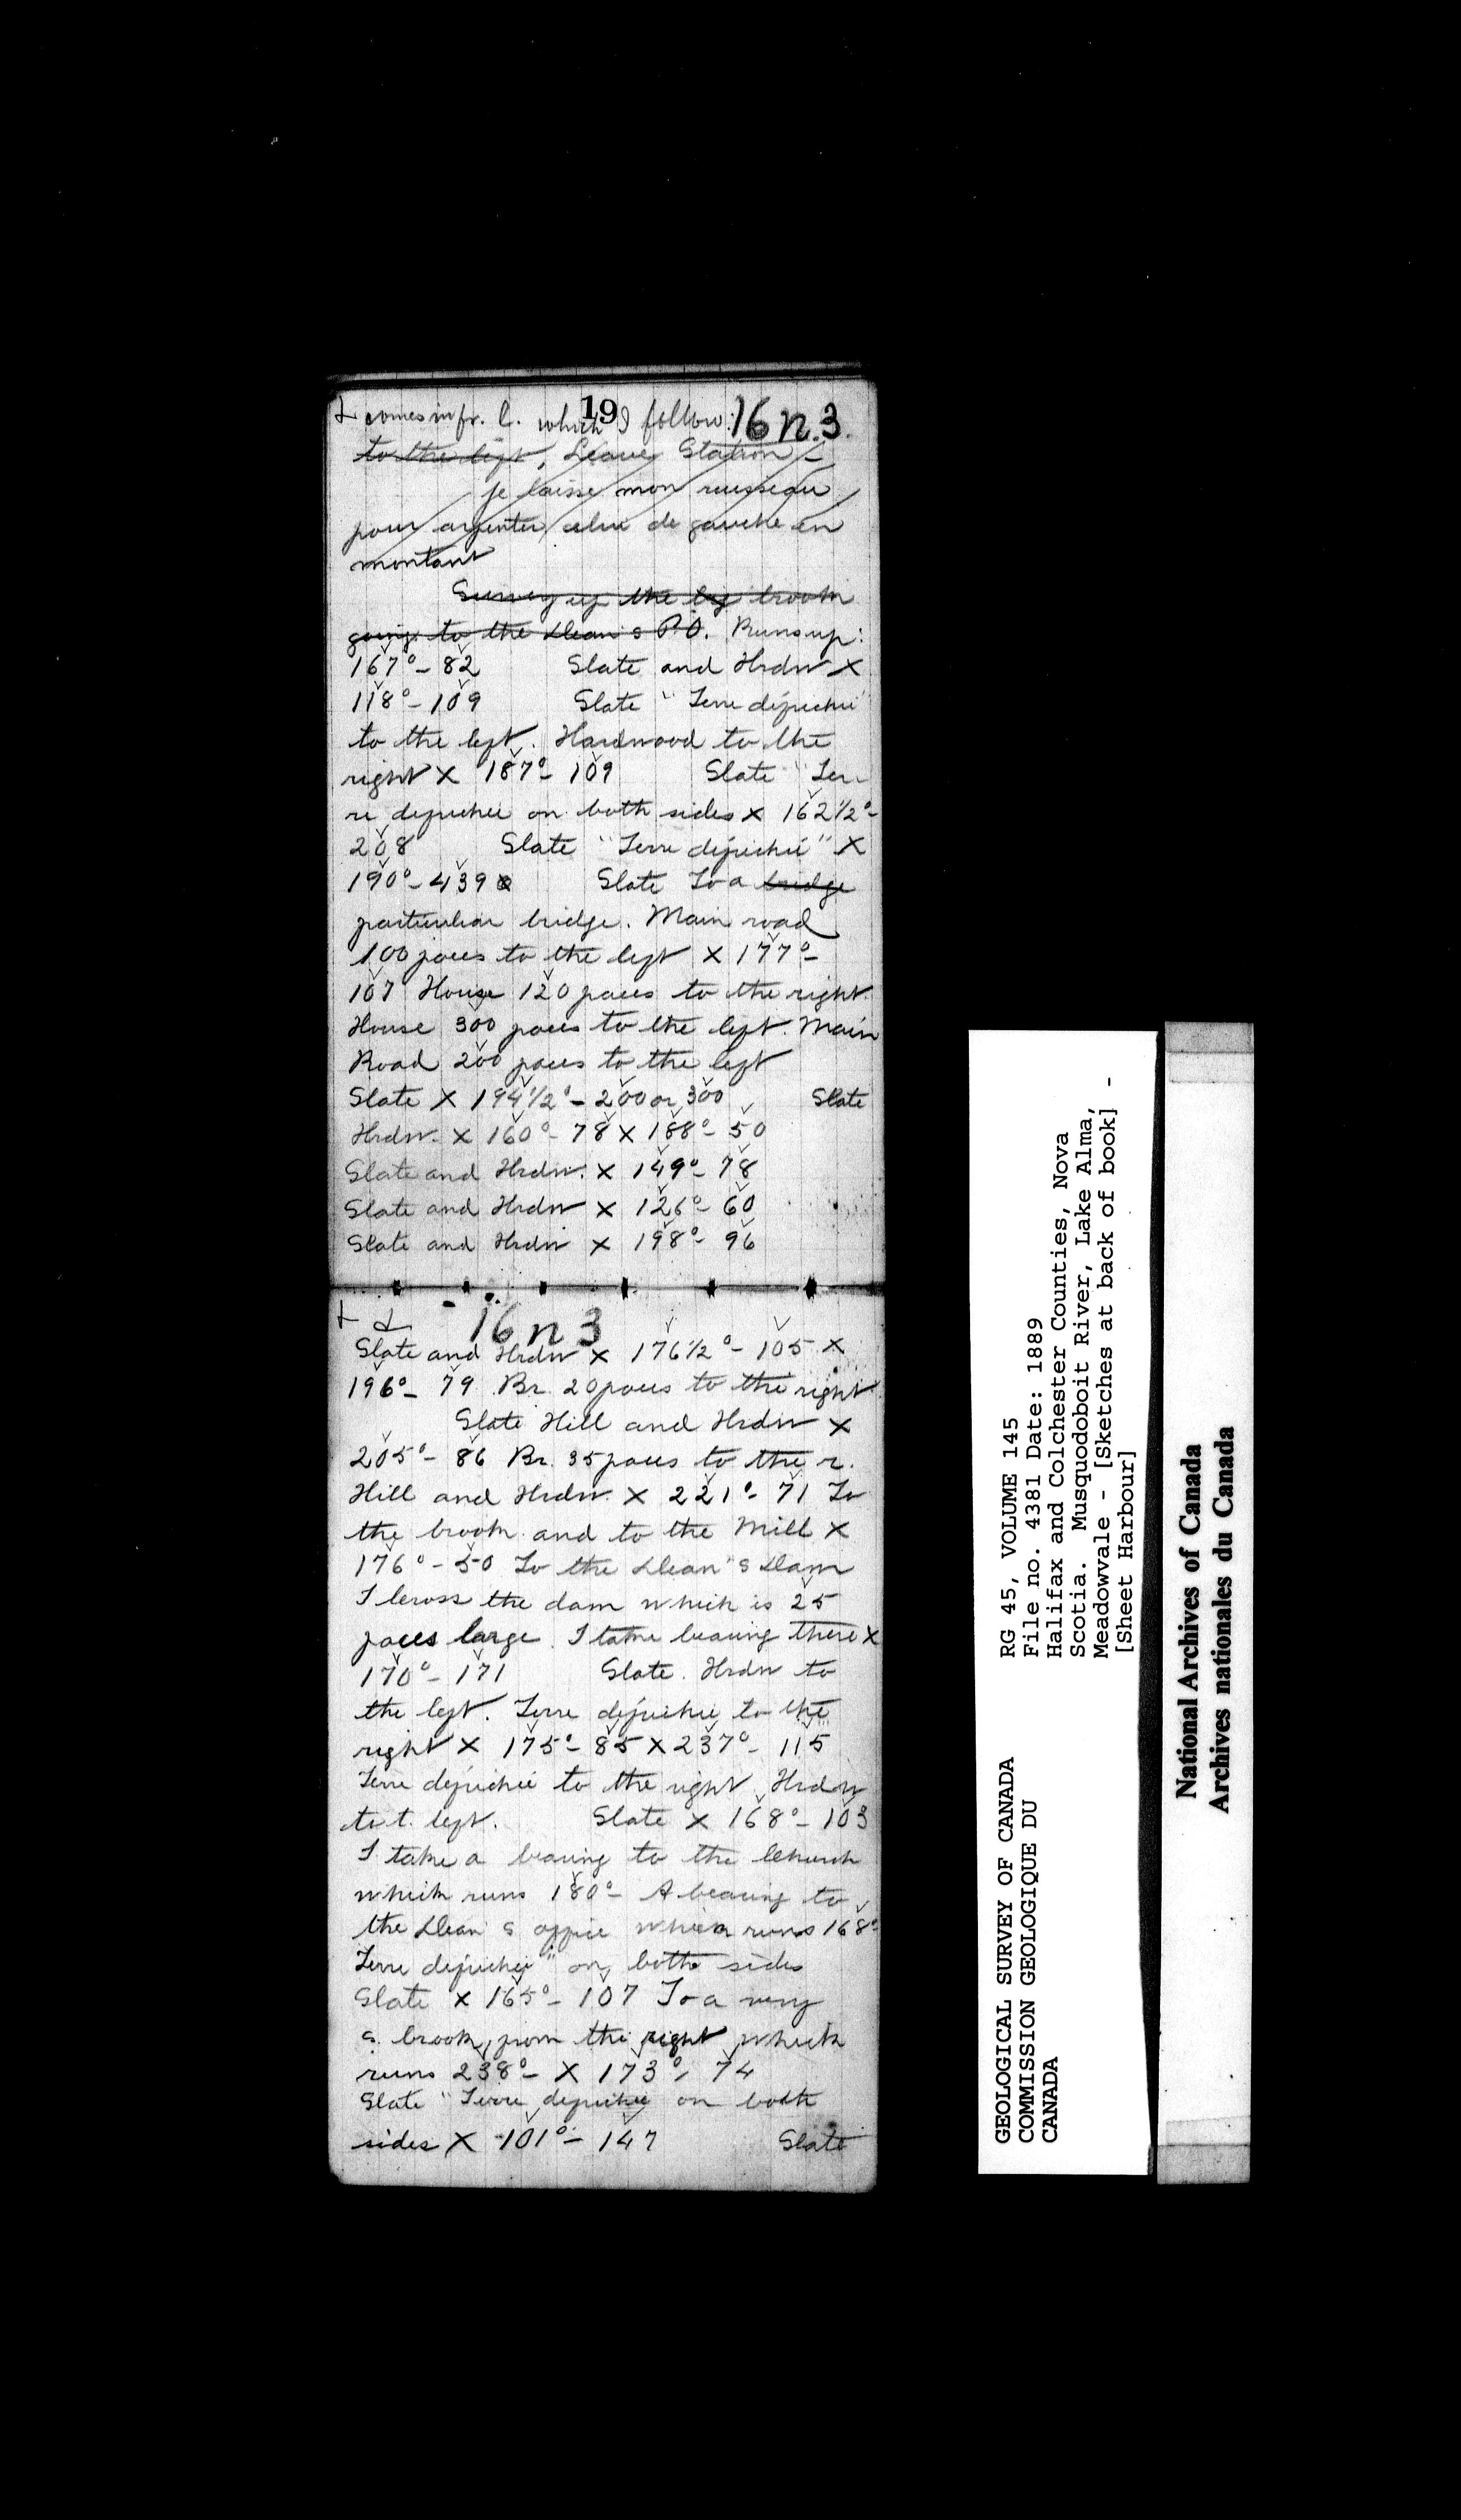 19
& comes in fr. l. which I follow: 16 n.3.
to the left, Leave Station –
je laisse mon ruisseau
pour arpenter celui de gauche en
montant
Survey up the big brook
going to the Dean's P.O. Runs up:
167° - 82 Slate and Hrdw X
118° - 109 Slate "Terre défrichée
to the left. Hardwood to the
right X 187° - 109 Slate "Ter-
re défrichée on both sides X 162 1/2° -
208 Slate "Terre défriché" X
190° - 439 Slate To a bridge
particular bridge. Main road
100 paces to the left X 177° -
107 House 120 paces to the right.
House 300 paces to the left. Main
Road 200 paces to the left
Slate X 194 1/2° - 200 or 300 Slate
Hrdw. X 160° - 78 X 188° - 50
Slate and Hrdw. X 149° - 78
Slate and Hrdw X 126° - 60
Slate and Hrdw X 198° - 96
16 n 3
Slate and Hrdw X 176 1/2° - 105 X
196° - 79 Br. 20 paces to the right
Slate Hill and Hrdw X
205° - 86 Br. 35 paces to the r.
Hill and Hrdw. X 221° - 71 To
the brook and to the Mill X
176° - 50 To the Dean's Dam
I cross the dam which is 25
paces large. I take bearing there X
170° - 171 Slate. Hrdw to
the left. Terre défrichée to the
right X 175° - 85 X 237° - 115
Terre défrichée to the right Hrdw
to t. left. Slate X 168° - 103
I take a bearing to the church
which runs 180° - A bearing to
the Dean's office which runs 168°
Terre défrichée" on both sides
Slate X 165° - 107 To a very
s. brook, from the right which
runs 238° - X 173° - 74
Slate "Terre défrichée on both
sides X 101° - 147 Slate
GEOLOGICAL SURVEY OF CANADA
COMMISSION GEOLOGIQUE DU
CANADA
RG 45, VOLUME 145
File no. 4381 Date: 1889
Halifax and Colchester Counties, Nova
Scotia. Musquodoboit River, Lake Alma,
Meadowvale - [Sketches at back of book] -
[Sheet Harbour]
National Archives of Canada
Archives nationales du Canada